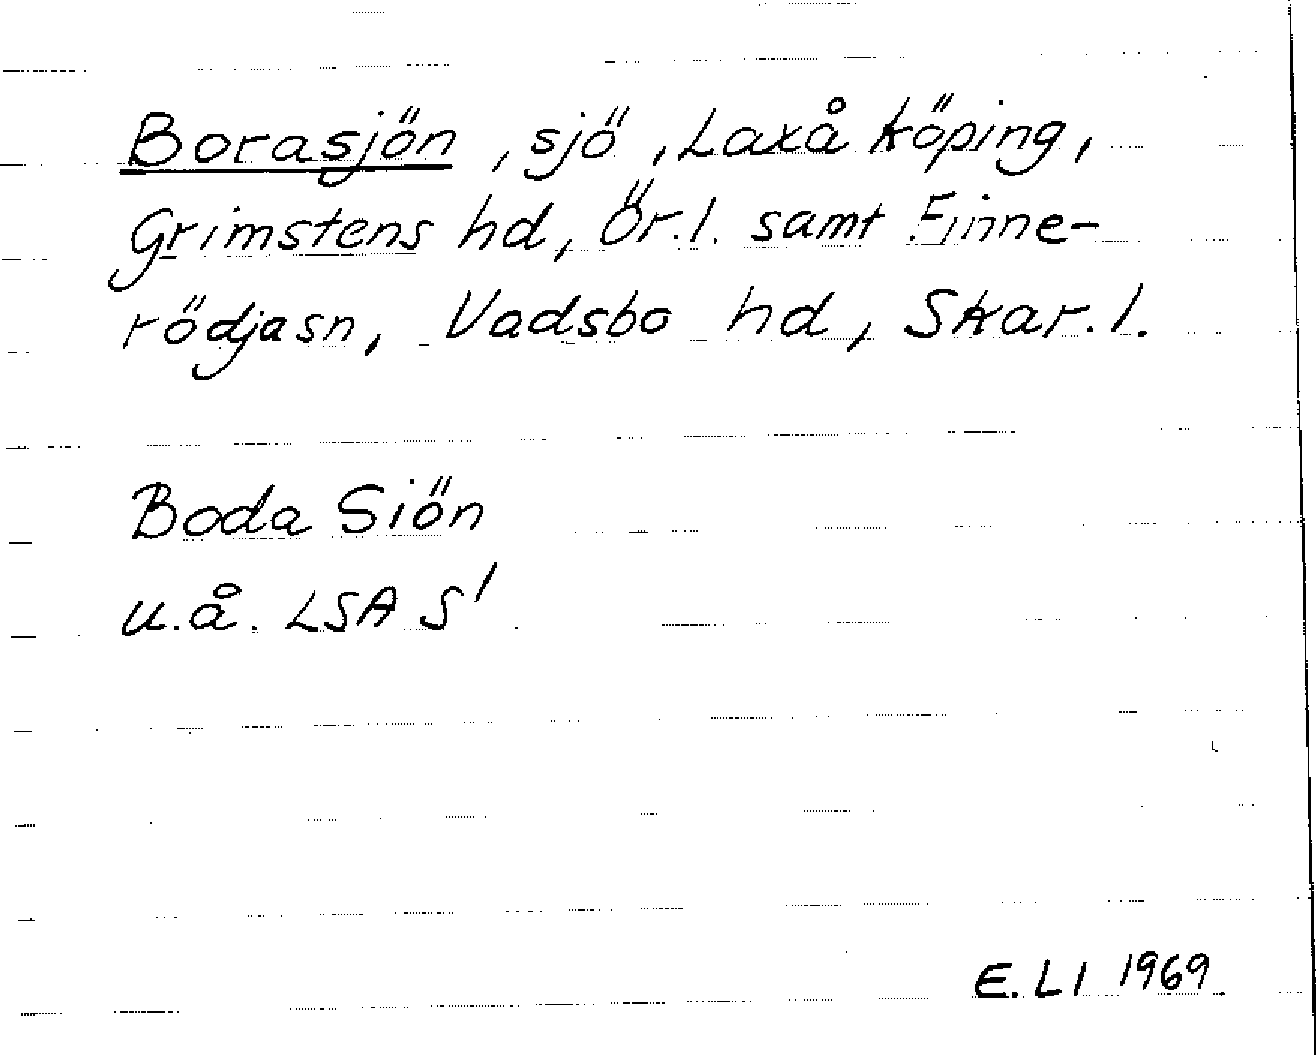 Borasjön, sjö, Laxå köping,
Grimstens hd, Ör.l. samt Finne-
rödjasn, Vadsbo hd, Skar.l.
Boda Siön
u.å. LSA S'
E. LI 1969